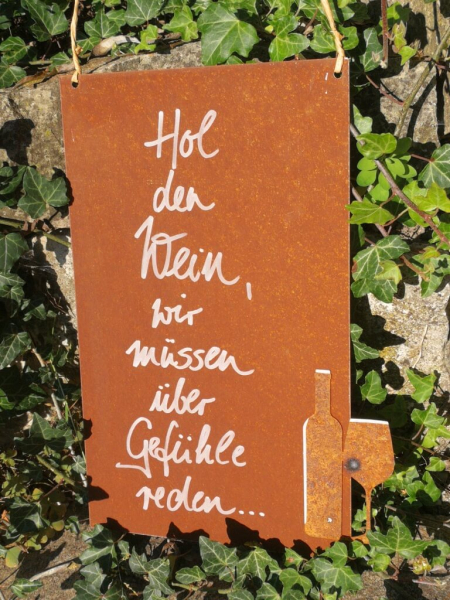 Hol
den
Wein,
wir
müssen
über
Gefühle
reden...